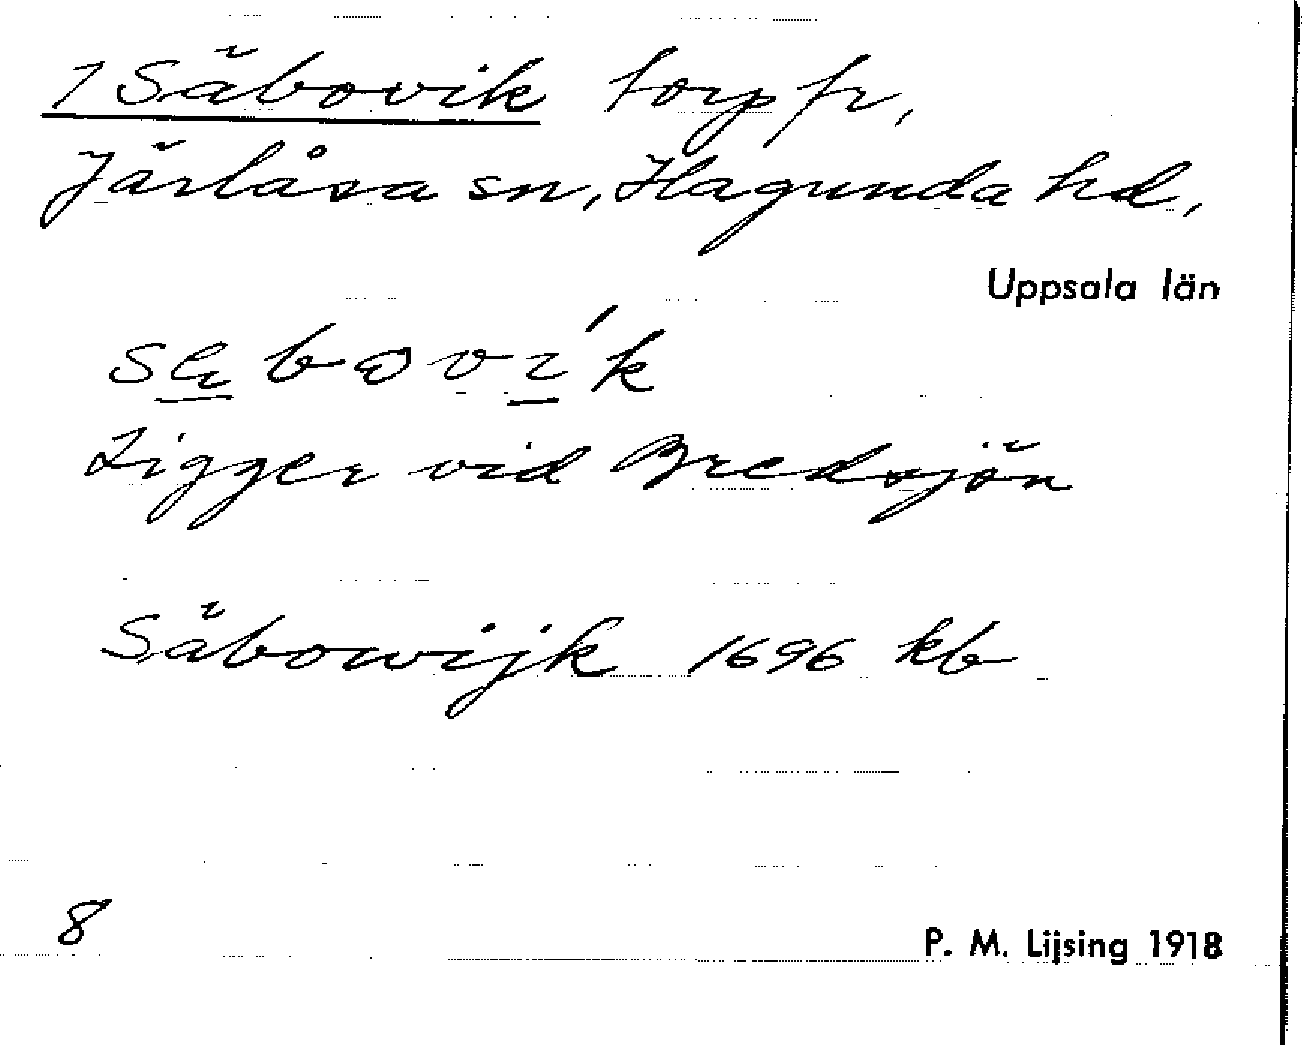 1 Säbovik torp fr,
Järlåsa sn, Hagunda hd,
Uppsala län
Ligger vid Bredsjön
Säbowijk 1696 kb
8
P. M. Lijsing 1918